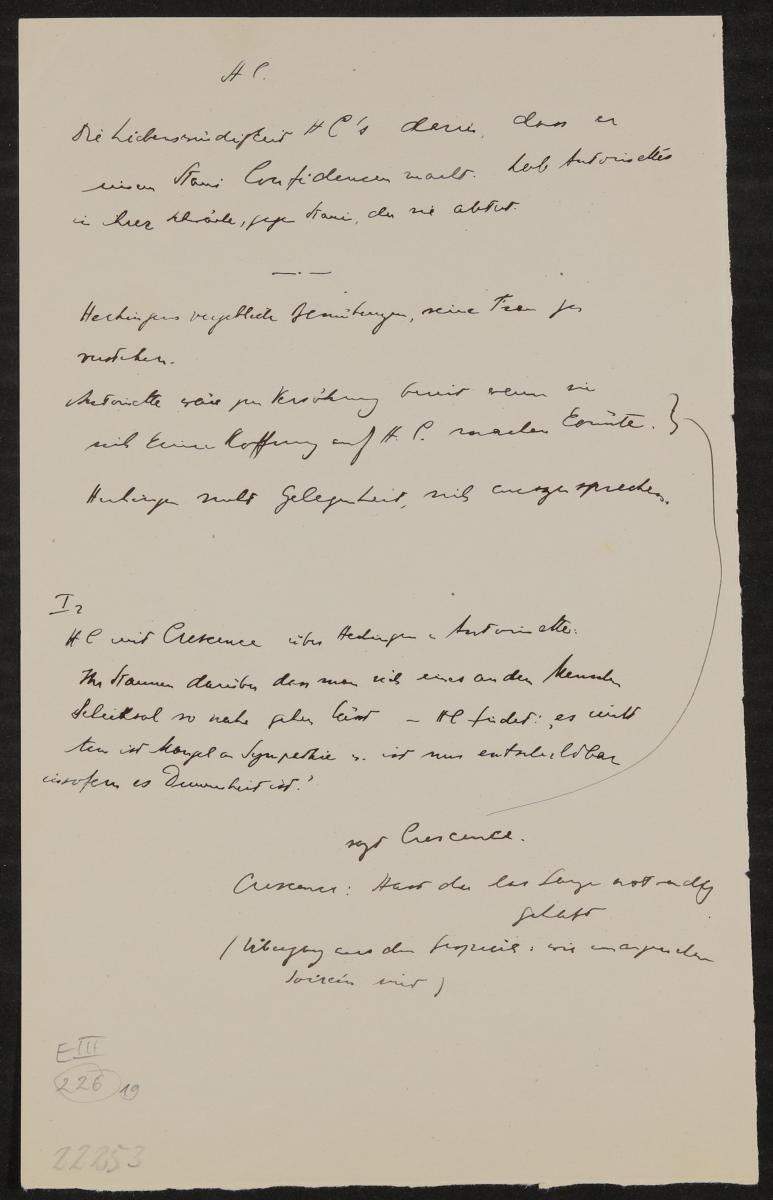 H C.
Die Liebenswürdigkeit H C's darin, dass er
einem Stani Confidencen macht. Lob Antoinettes
in ihrer Schwäche, gegen Stani, der sie abtut.
—.—
Hechingens vergebliche Bemühungen, seine Frau zu
verstehen.
Antoinette wäre zur Versöhnung bereit wenn sie
sich keine Hoffnung auf H. C. machen könnte. }
Hechingen sucht Gelegenheit, sich auszusprechen.
I2
HC mit Crescence über Hechingen u Antoinette:
Ihr Staunen darüber dass man sich eines anderen Menschen
Schicksal so nahe gehen lässt – HC findet: „es nicht
tun ist Mangel an Sympathie u. ist nur entschuldbar
insofern es Dummheit ist."
sagt Crescence.
Crescence: Hast du
gehabt
(Übergang aus dem : wie unangenehm
Soiréen sind)
E III
226 19
22253